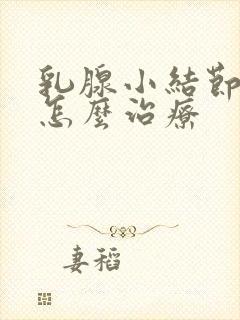 乳腺小結節
怎麼治療
妻稻